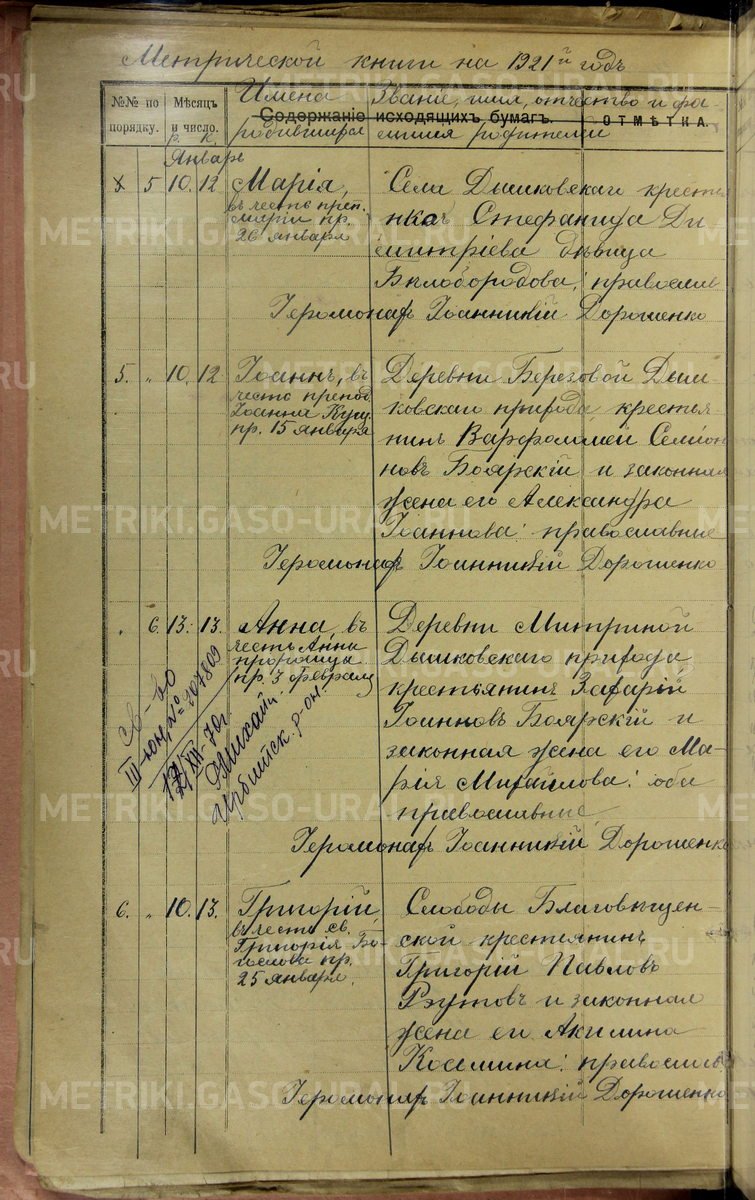 Метрической книги на 1921й годъ
№№ по порядку.
Мѣсяцъ и число.
Содержаніе исходящихъ бумагъ.
ОТМѢТКА.
Имена родившихся
Званіе, имя, отчество и фамилия родителей
р. к.
Январь
х 5 10. 12
Марія,
въ честь преп.
Маріи пр.
26 января
Села Дымковскаго крестья
нка Стефанида Ди
митріева дѣвица
Бѣлобородова, православ
Іеромонахъ Іоанникій Дорошенко
5. " 10. 12
Іоаннъ, въ
честь препод
Іоанна Кущ.
пр. 15 января
Деревни Березовой Дым
ковскаго прихода, крестья
нинъ Варфоломей Семіон
новъ Боярскій и законная
жена его Александра
Іоаннова: православные
Іеромонахъ Іоанникій Дорошенко
" 6. 13. 13.
Анна, въ
честь Анны
пророчицы
пр. 3 февраля
Деревни Митриной
Дымковскаго прихода
крестьянинъ Захарій
Іоанновъ Боярскій и
законная жена его Ма-
рія Михайлова: оба
православные
Іеромонахъ Іоанникій Дорошенко
св-во
III-юн, № 307809
21/XII-70г
Ирбитск. р-он.
6. " 10. 13.
Григорій,
въ честь св.
Григорія Бо-
гослова пр.
25 января.
Слободы Благовѣщен-
ской крестьянинъ
Григорій Павловъ
Рэутовъ и законная
жена его Акилина
Косьмина: православ
Іеромонахъ Іоанникій Дорошенко
METRIKI.GASO-URAL.RU